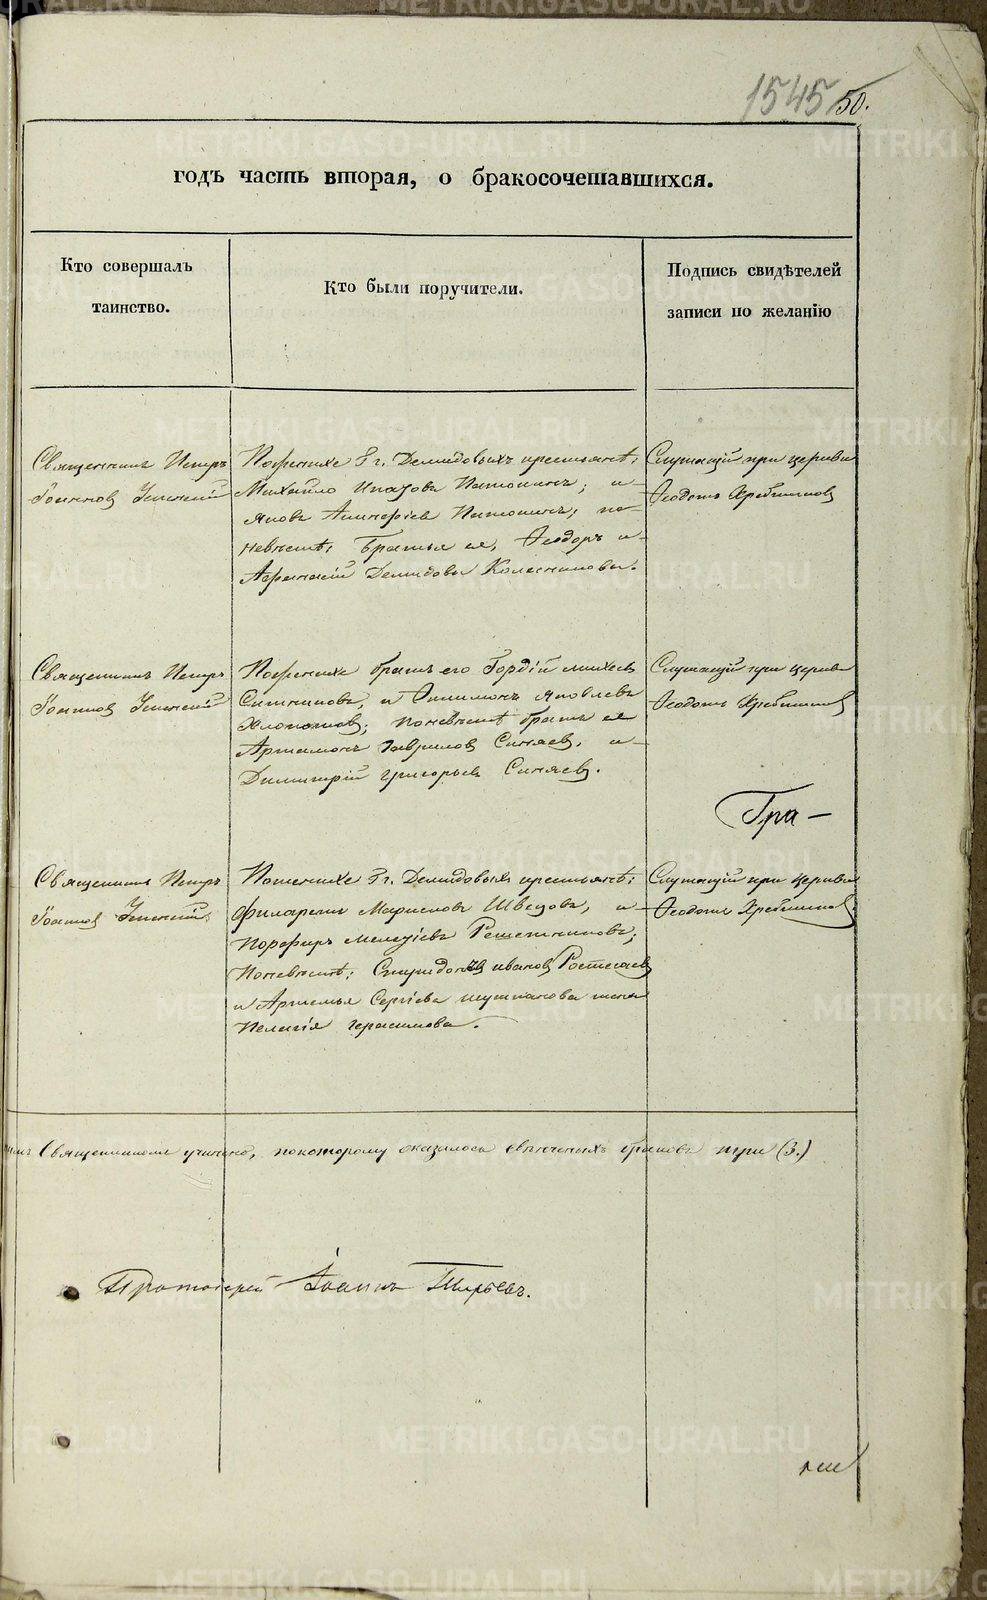 1545 50.
годъ часть вторая, о бракосочетавшихся.
Кто совершалъ
таинство.
Кто были поручители.
Подпись свидѣтелей
записи по желанію
Священникъ Петръ
Іоанновъ
По женихе Г г. Демидовыхъ крестьянѣ;
Михайло Ипатовъ Патокинъ; и
Яковъ Патокинъ; по
невѣстѣ; Братья ея, Ѳеодоръ и
Афанасій Демидовы Колесниковы.
Служащій при церкви
Ѳеодотъ Хребтиковъ
Священникъ Петръ
Іоанновъ
По женихе братъ его Гордій Михеевъ
Ситниковъ, и Филимонъ Яковлевъ
Хлопотовъ; по невѣстѣ братъ ея
Артамонъ Гавриловъ Синяевъ, и
Димитрій Григорьевъ Синяевъ.
Служащій при церкви
Ѳеодотъ
Гра-
Священникъ Петръ
Іоанновъ
По женихе Г г. Демидовыхъ крестьянѣ;
Филаретъ Марковъ Швецовъ, и
Порфиръ Мелетіевъ Решетниковъ;
По невѣстѣ; Спиридонъ Ивановъ
и Артемья Сергіева жена
Пелагія Герасимова.
Служащій при церкви
Ѳеодотъ
Священникомъ учинено, по которому оказалось свѣнчаныхъ браковъ три (3.)
Протоіерей Іоаннъ
METRIKI.GASO-URAL.RU